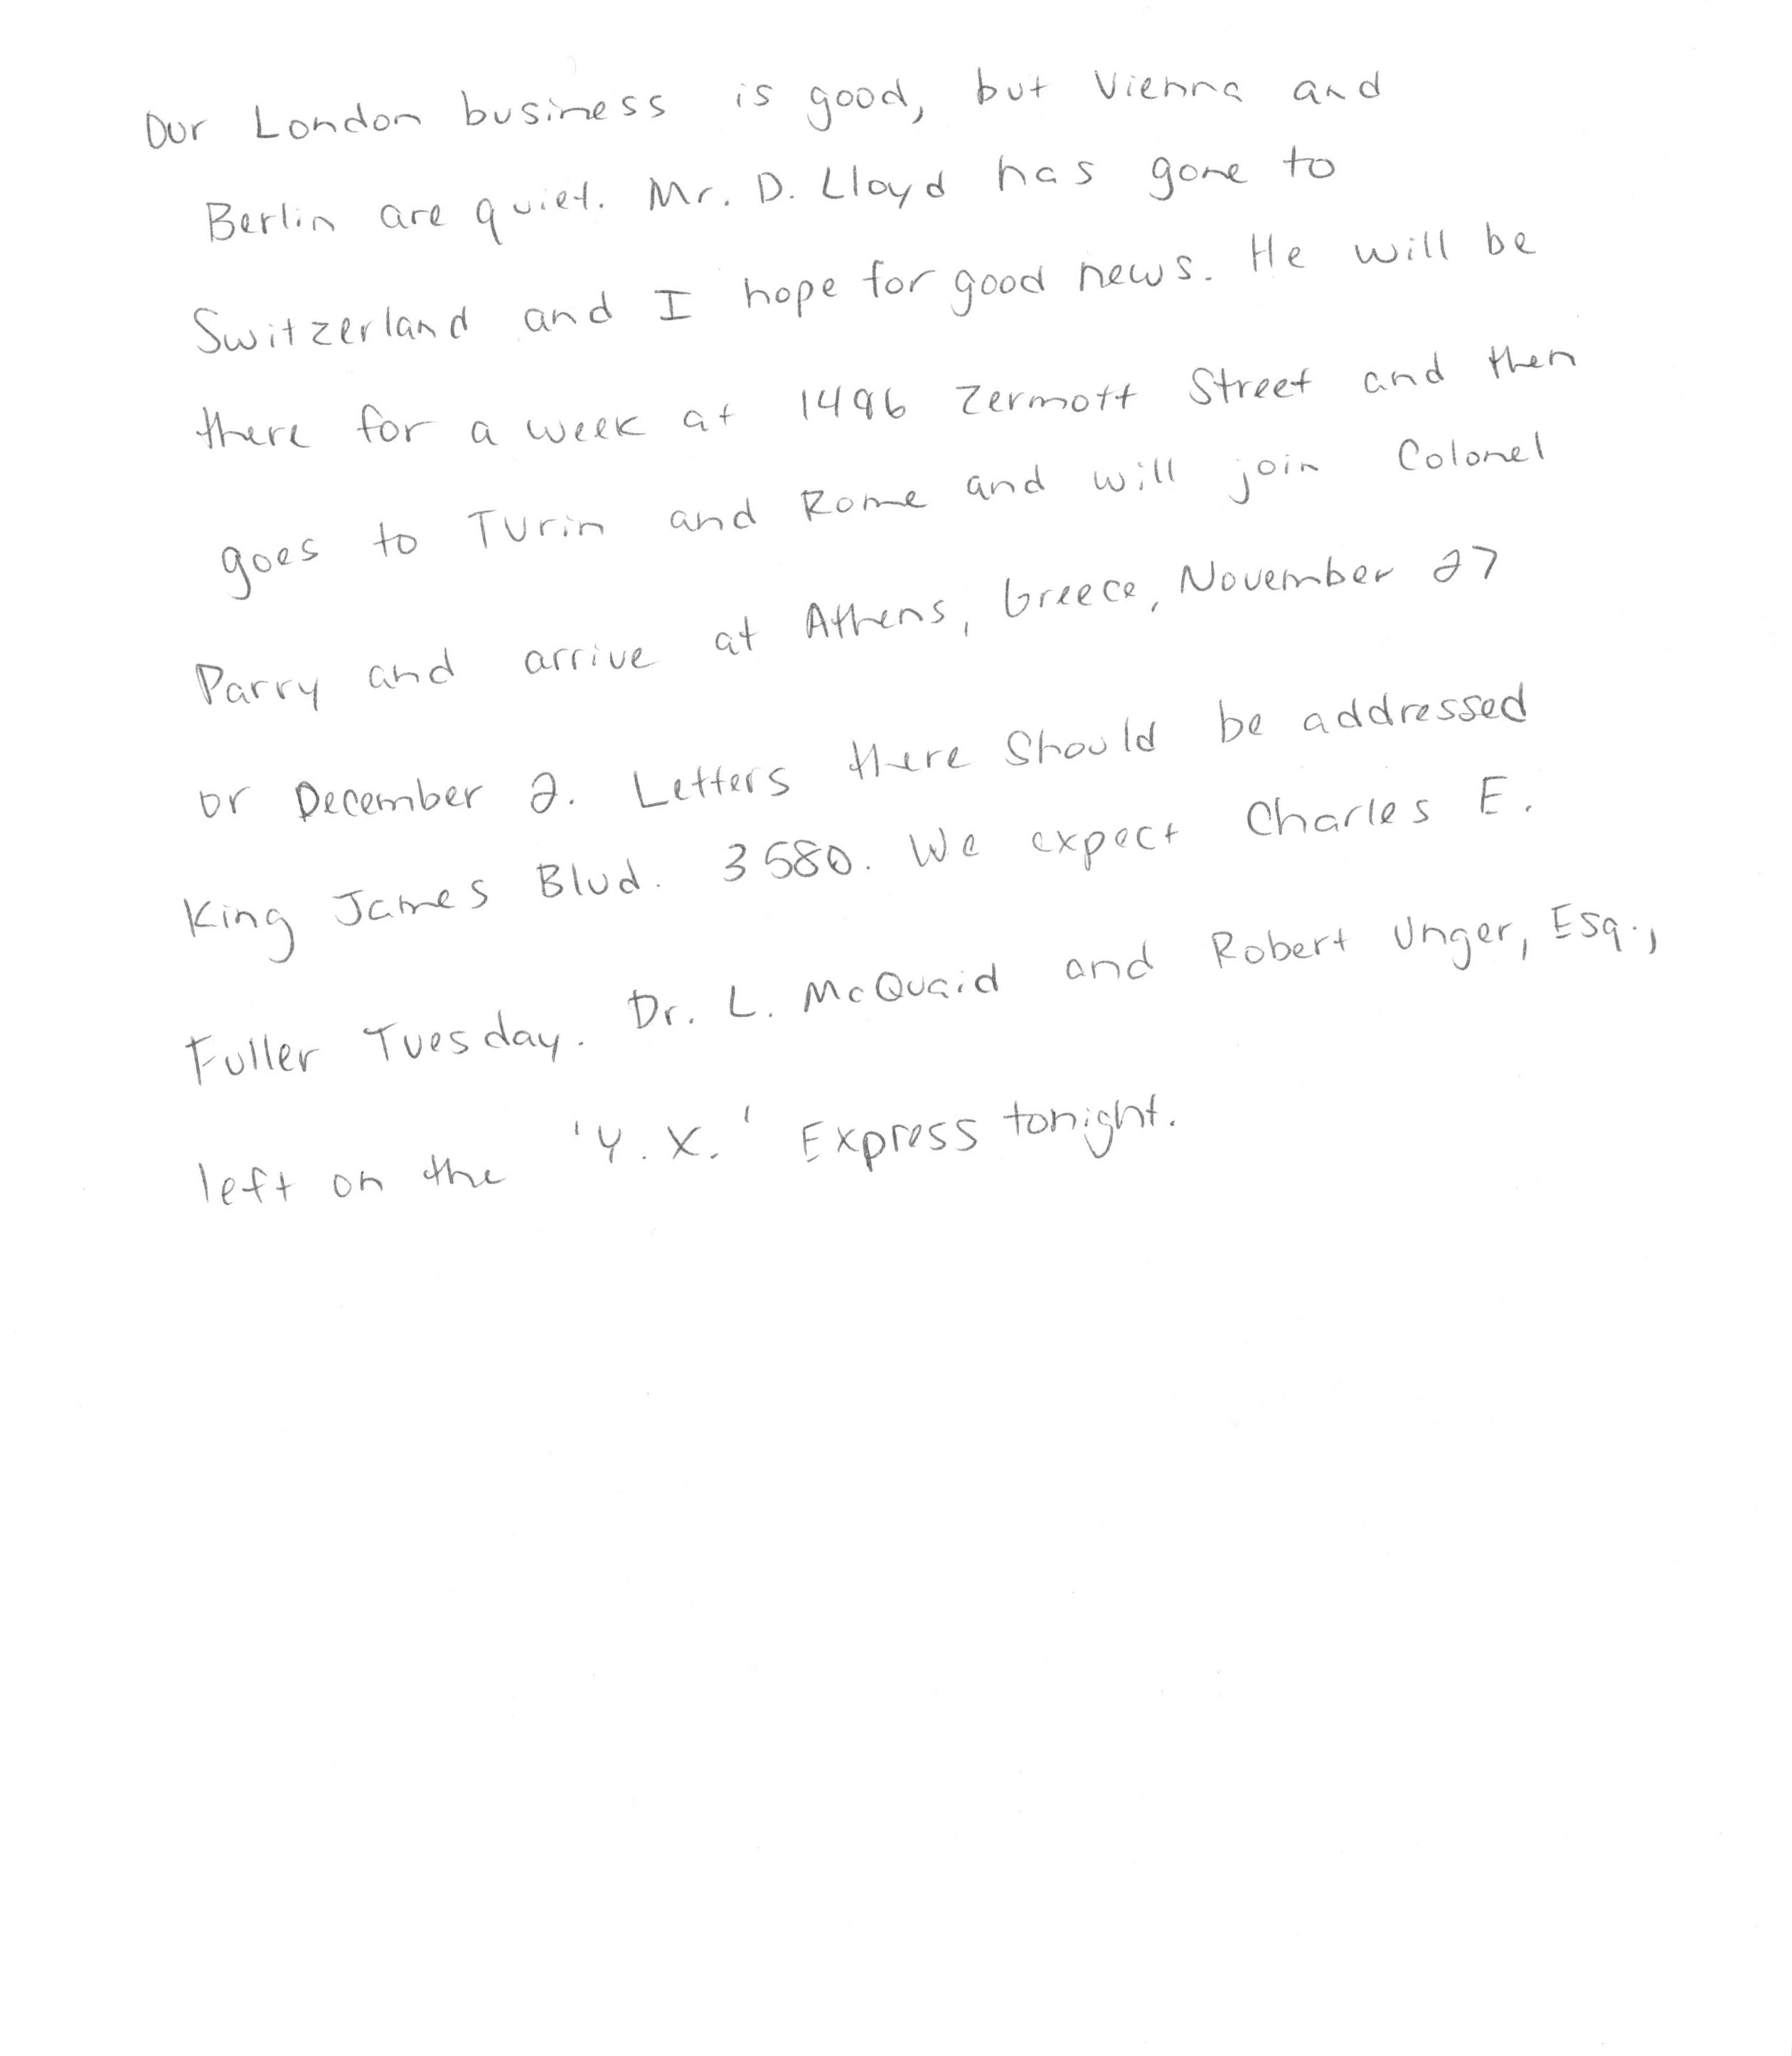 Our London business is good, but Vienna and
Berlin are quiet. Mr. D. Lloyd has gone to
Switzerland and I hope for good news. He will be
there for a week at 1496 Zermott Street and then
goes to Turin and Rome and will join Colonel
Parry and arrive at Athens, Greece, November 27
or December 2. Letters there Should be addressed
King James Blvd. 3580. We expect Charles E.
Fuller Tuesday. Dr. L. McQuaid and Robert Unger, Esq.,
left on the 'Y. X.' Express tonight.